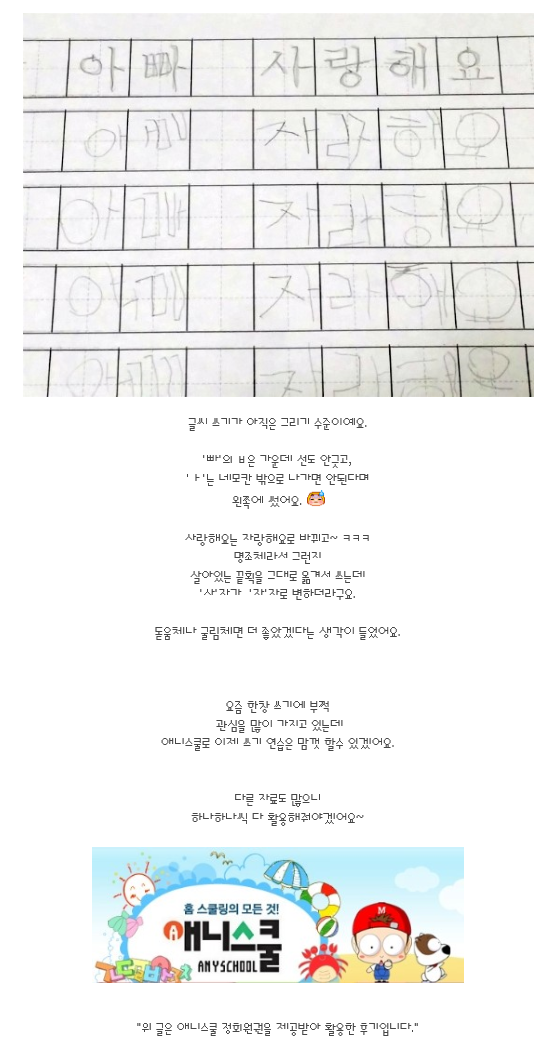 아빠 사랑해요
아빠 자라해요
아빠 자라해요
아빠 자라해요
아빠 자라해요
글씨 쓰기가 아직은 그리기 수준이예요.
'빠'의 ㅂ은 가운데 선도 안긋고,
'ㅏ'는 네모칸 밖으로 나가면 안된다며
왼쪽에 썼어요.
사랑해요는 자랑해요로 바뀌고~ ㅋㅋㅋ
명조체라서 그런지
살아있는 끝획을 그대로 옮겨서 쓰는데
'사'자가 '자'자로 변하더라구요.
돋움체나 굴림체면 더 좋았겠다는 생각이 들었어요.
요즘 한창 쓰기에 부쩍
관심을 많이 가지고 있는데
애니스쿨로 이제 쓰기 연습은 맘껏 할수 있겠어요.
다른 자료도 많으니
하나하나씩 다 활용해줘야겠어요~
홈 스쿨링의 모든 것!
애니스쿨
ANYSCHOOL
"위 글은 애니스쿨 정회원권을 제공받아 활용한 후기입니다."